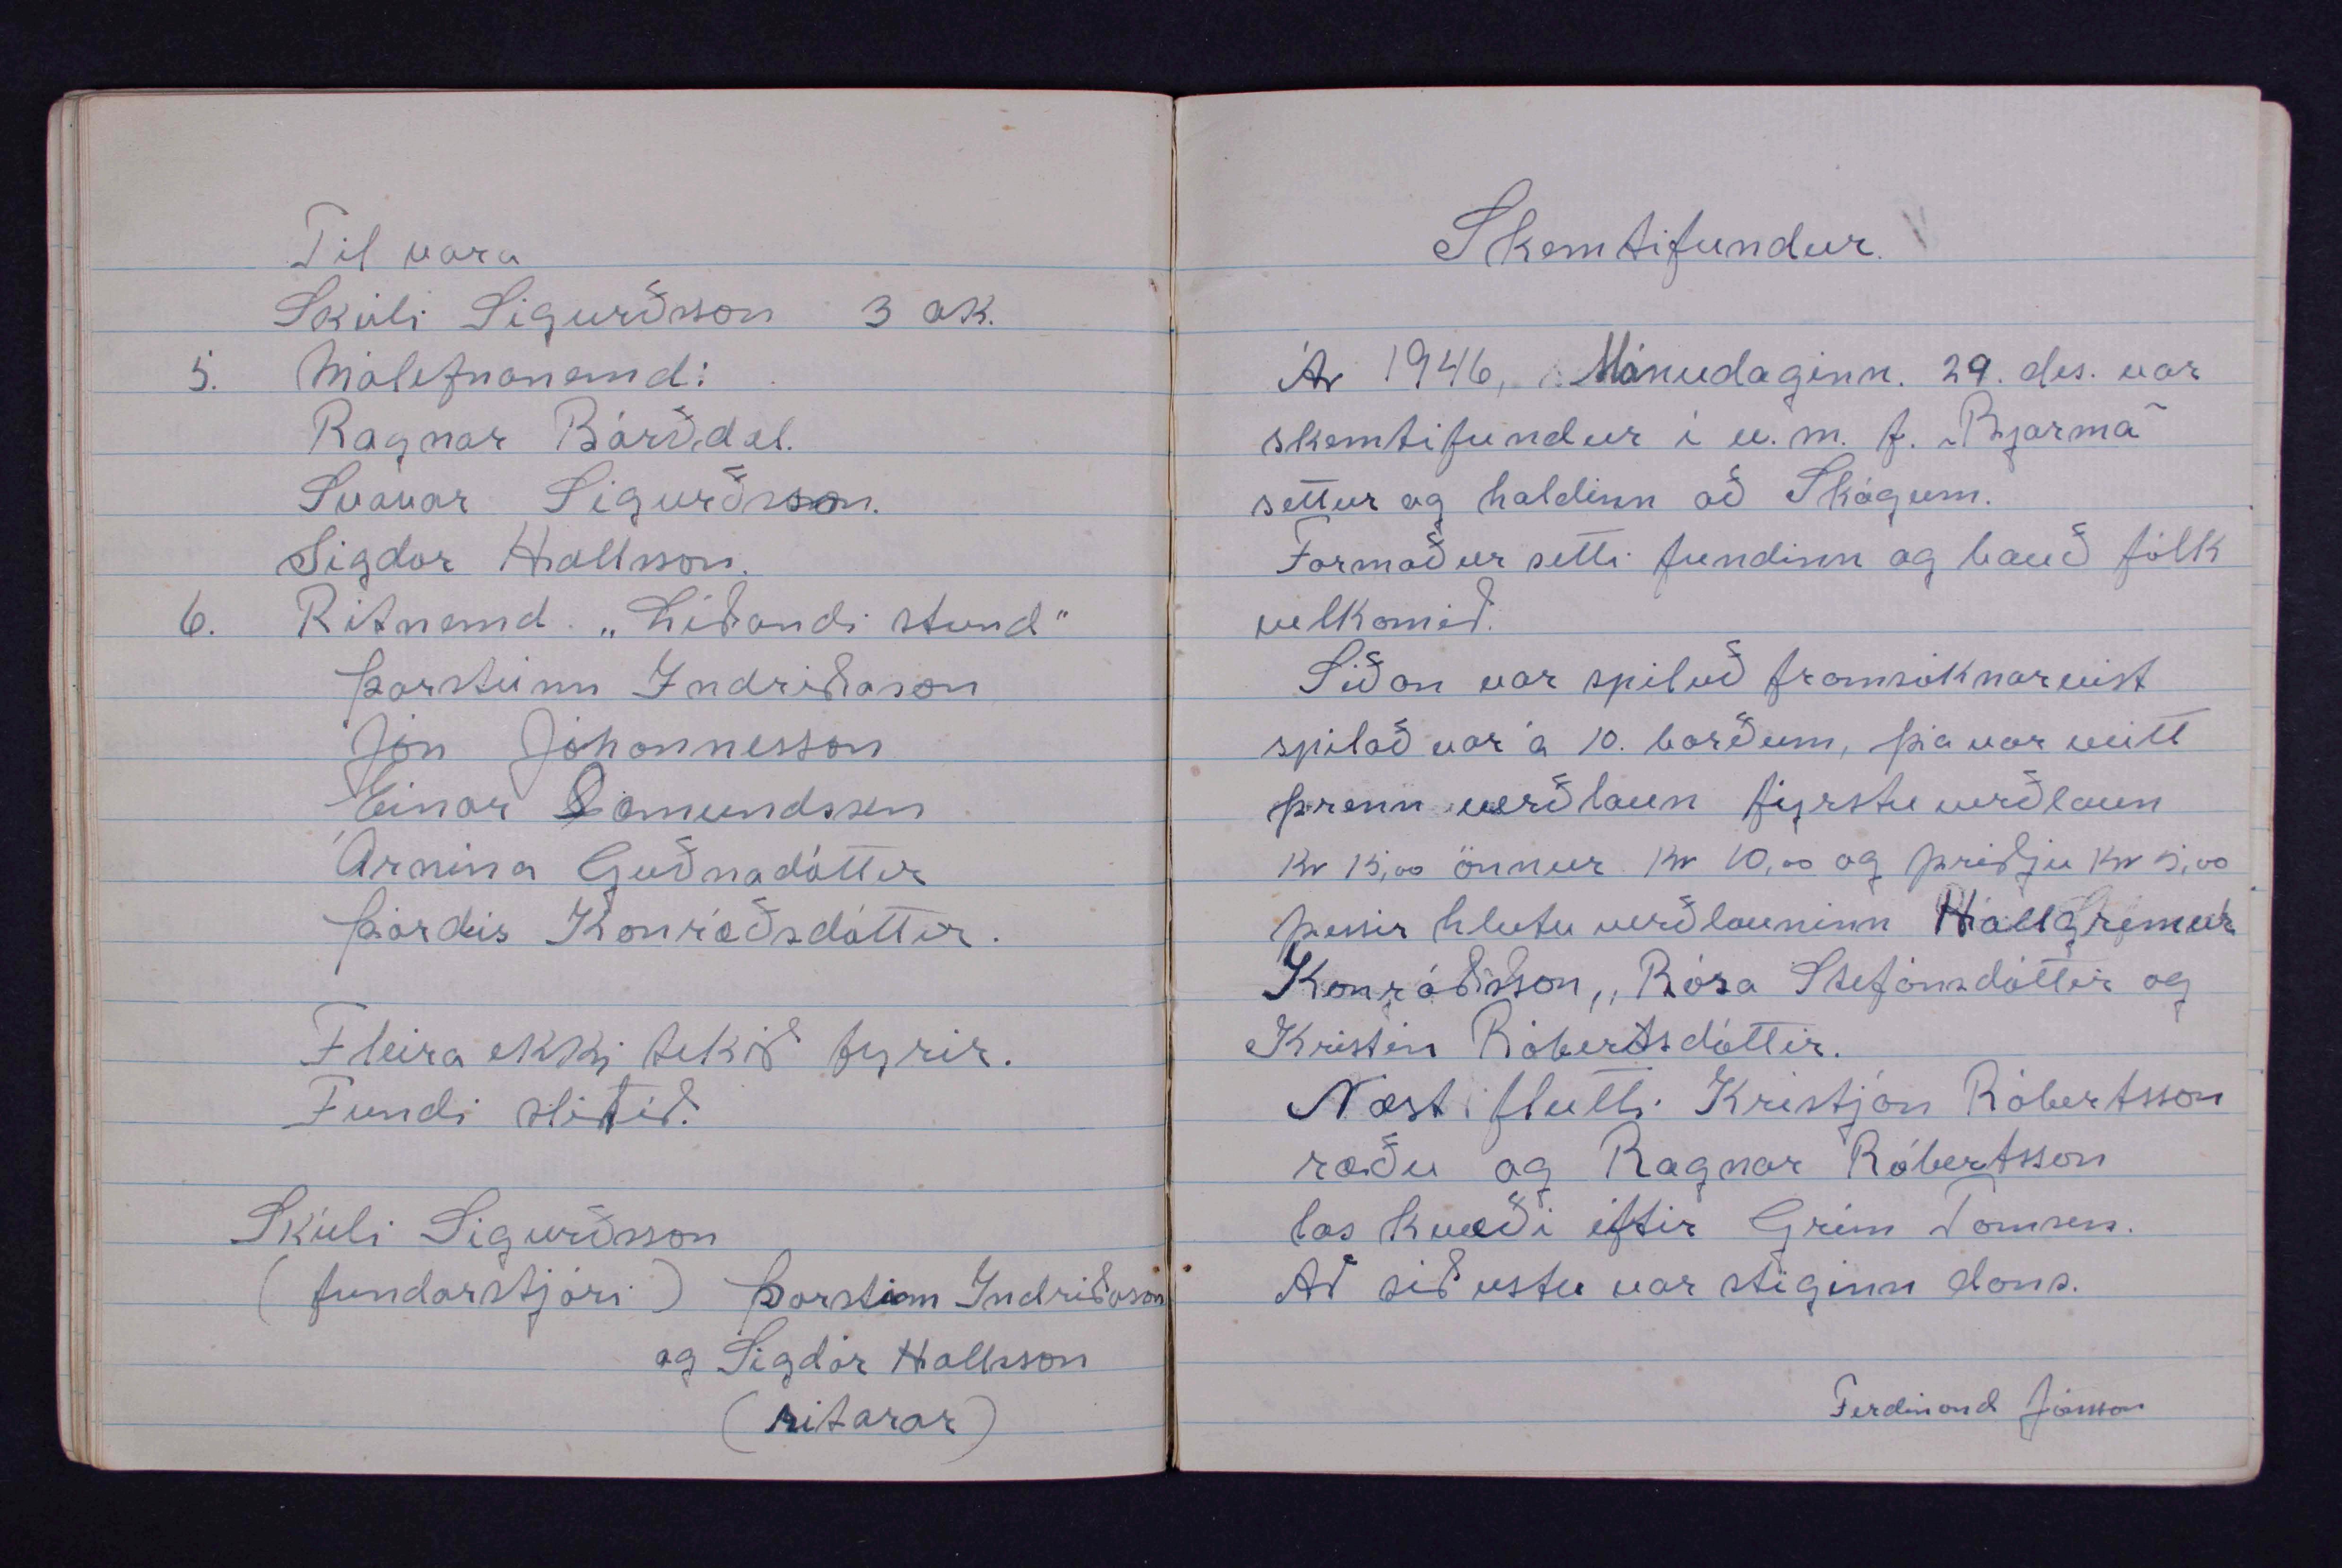 Til vara
Skúli Sigurðsson 3 ak.
5. Málefnanemd:
Ragnar Bárðdal.
Svavar Sigurðsson.
Sigdór Hallsson.
6. Ritnemd. „Líðandi stund"
Þorsteinn Indriðason
Jón Jóhannesson
Einar Sæmundsson
Árnína Guðnadóttir
Þórdís Konráðsdóttir.
Fleira ekki tekið fyrir.
Fundi slitið.
Skúli Sigurðsson
(fundarstjóri) Þorsteinn Indriðason
og Sigdór Hallsson
(ritarar)
Skemtifundur.
Ár 1946, Mánudaginn. 29. des. var
skemtifundur í u. m. f. „Bjarma"
settur og haldinn að Skógum.
Formaður setti fundinn og bauð fólk
velkomið.
Síðan var spiluð framsóknarvist
spilað var á 10. borðum, þá var veitt
þrenn verðlaun fyrstu verðlaun
Kr 15,00 önnur Kr 10,00 og þriðju Kr 5,00
þessir hlutu verðlauninn Hallgrímur
Konráðsson, Rósa Stefánsdóttir og
Kristín Róbertsdóttir.
Næst flutti Kristján Róbertsson
ræðu og Ragnar Róbertsson
las kvæði eftir Grím Tomsen.
Að síðustu var stiginn dans.
Ferdinand Jónsson